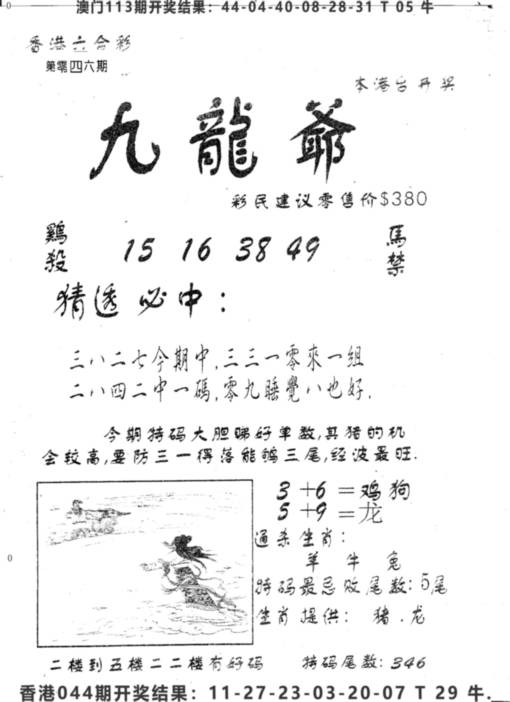 澳门113期开奖结果：44-04-40-08-28-31 T 05 牛
香港六合彩
第零四六期
本港台开奖
九龍爺
彩民建议零售价$380
鷄殺 15 16 38 49 馬禁
猜透必中：
三八二七今期中,三三一零來一组
二八四二中一碼,零九睡覺八也好.
今期特码大胆睇好单数,其猪的机
会较高,要防三一得落能鸭三尾,经波最旺.
3+6=鸡狗
5+9=龙
通杀生肖：
羊 牛 兔
特码最忌败尾数：5尾
生肖提供：猪.龙
二楼到五楼二二楼有好码 特码尾数：346
香港044期开奖结果：11-27-23-03-20-07 T 29 牛.